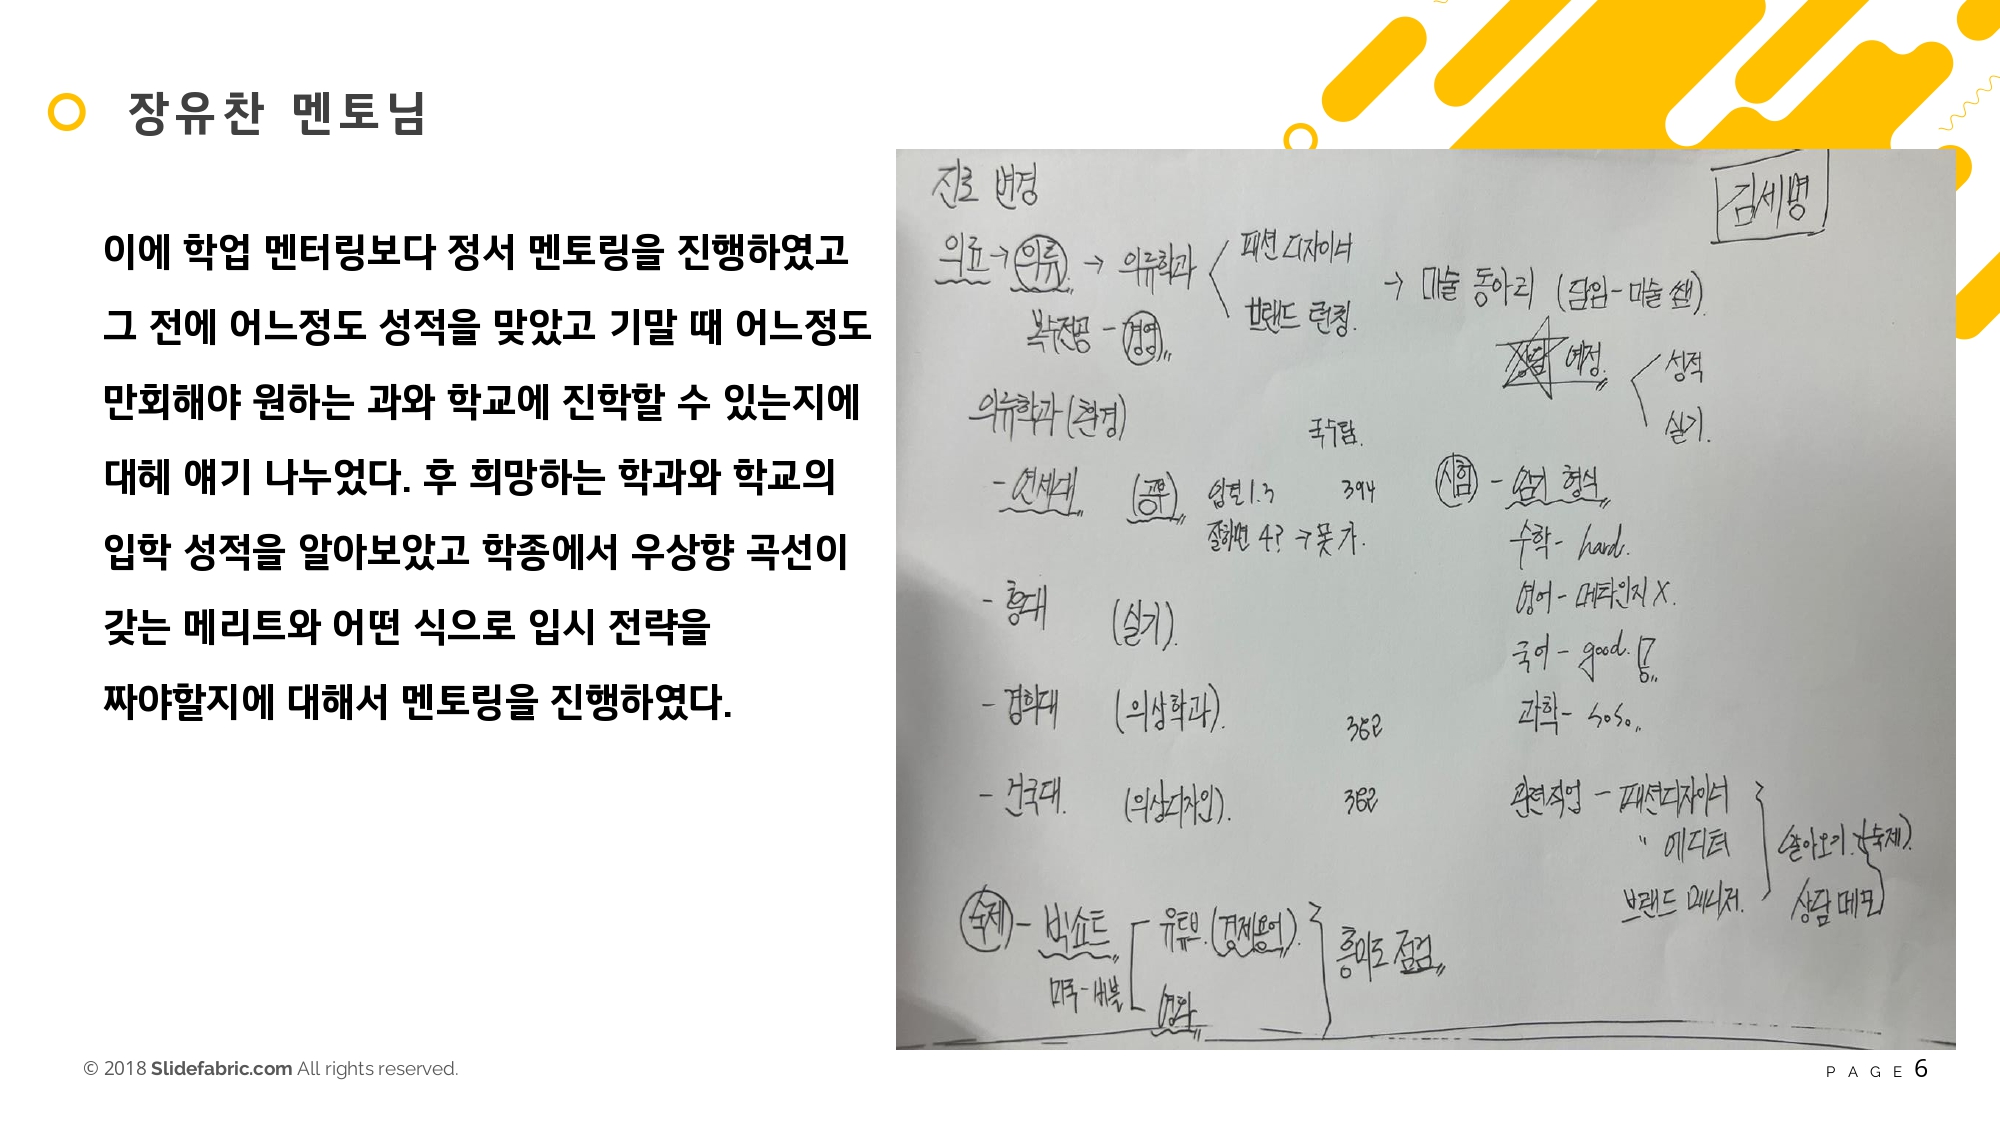 장유찬 멘토님
이에 학업 멘터링보다 정서 멘토링을 진행하였고
그 전에 어느정도 성적을 맞았고 기말 때 어느정도
만회해야 원하는 과와 학교에 진학할 수 있는지에
대헤 얘기 나누었다. 후 희망하는 학과와 학교의
입학 성적을 알아보았고 학종에서 우상향 곡선이
갖는 메리트와 어떤 식으로 입시 전략을
짜야할지에 대해서 멘토링을 진행하였다.
진로 변경
김세명
의료 → 의류 → 의류학과
패션 디자이너
브랜드 런칭.
→ 미술 동아리 (담임-미술 쌤).
복수전공 - 경영
상담 예정
성적
실기.
의류학과 (환경)
국수탐.
- 연세대 (공부) 입결 1.3 394
잘하면 4? → 못 가.
- 홍대 (실기).
- 경희대 (의상학과). 362
- 건국대. (의상디자인). 362
시험 - 암기 형식
수학 - hard.
영어 - 메타인지 X.
국어 - good.
과학 - soso.
관련직업 - 패션디자이너
" 에디터
브랜드 매니저.
찾아오기. (숙제).
상담 메모
숙제 - 빅쇼트
미국 - 버블
유튜브. (경제용어).
영화
흥미도 점검
© 2018 Slidefabric.com All rights reserved.
PAGE 6